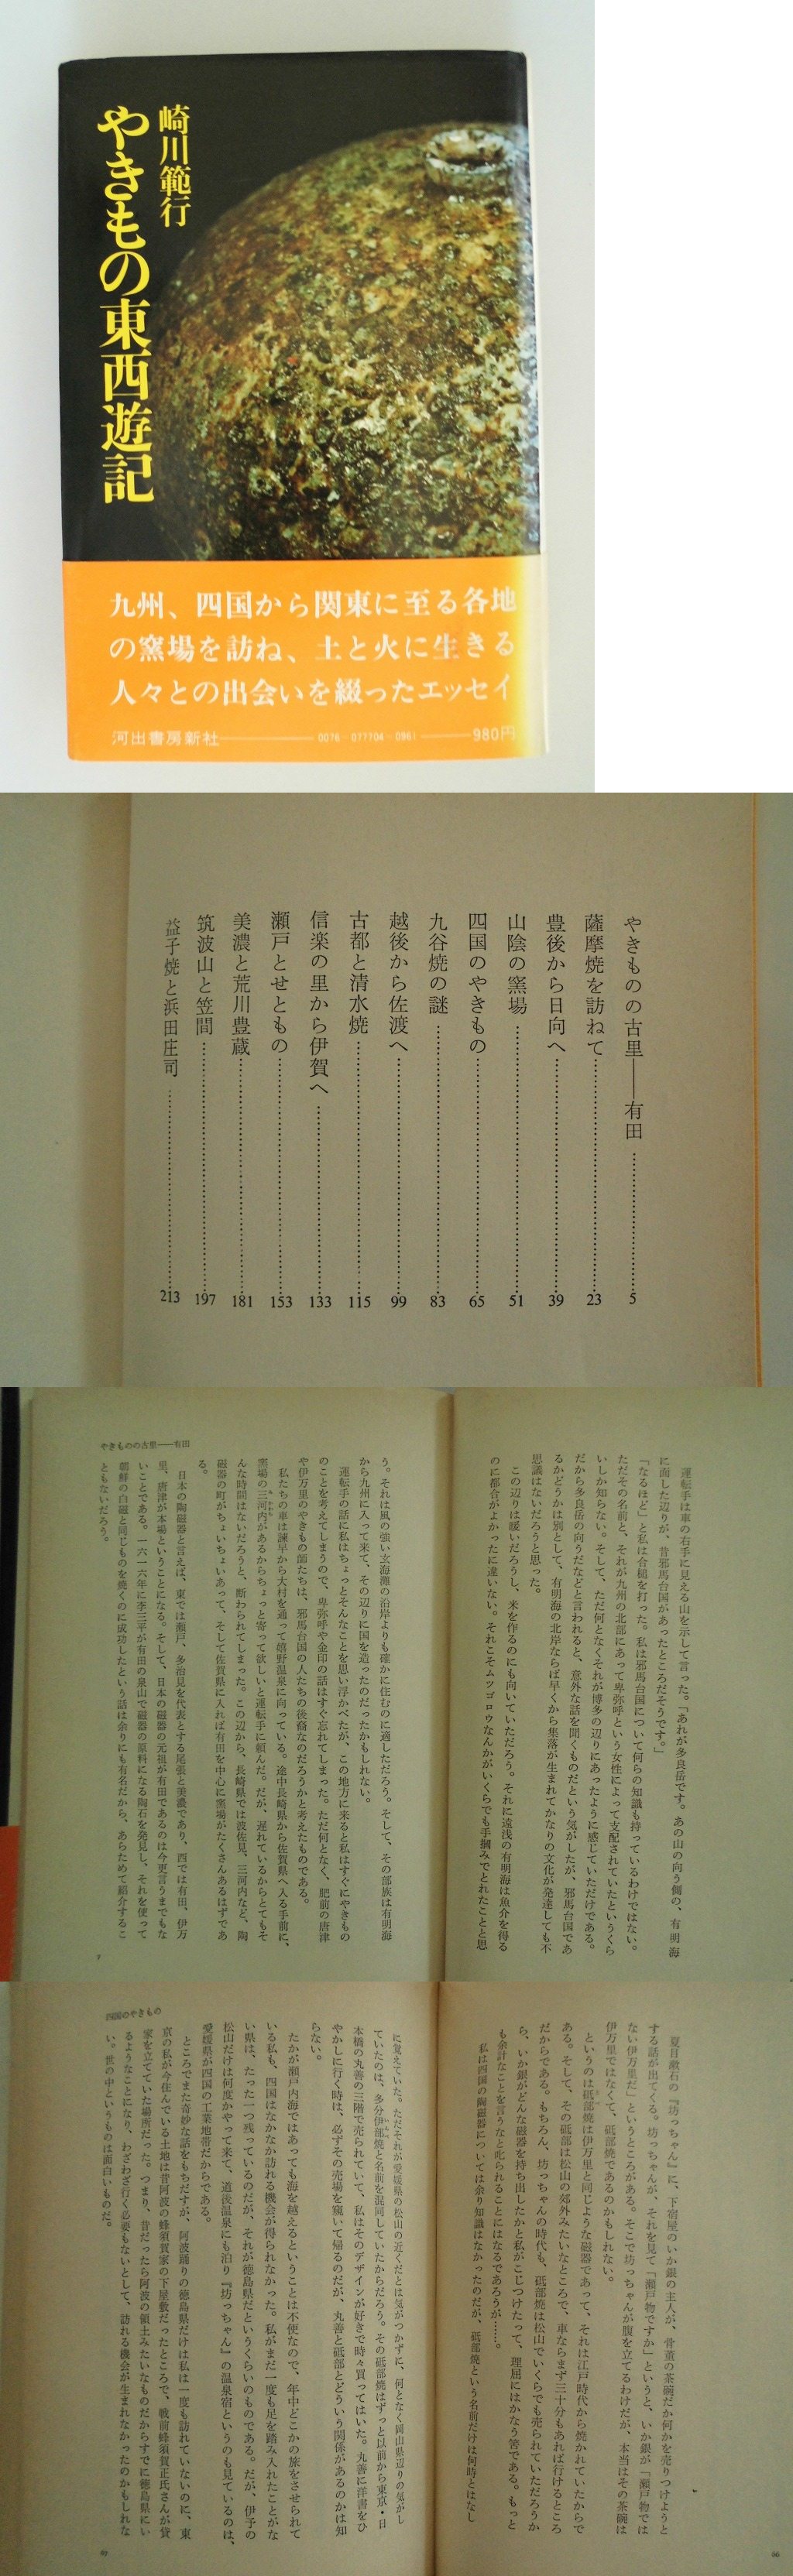 崎川範行
やきもの東西遊記
九州、四国から関東に至る各地
の窯場を訪ね、土と火に生きる
人々との出会いを綴ったエッセイ
河出書房新社 0076-077704-0961 980円
やきものの古里――有田 5
薩摩焼を訪ねて 23
豊後から日向へ 39
山陰の窯場 51
四国のやきもの 65
九谷焼の謎 83
越後から佐渡へ 99
古都と清水焼 115
信楽の里から伊賀へ 133
瀬戸とせともの 153
美濃と荒川豊蔵 181
筑波山と笠間 197
益子焼と浜田庄司 213
運転手は車の右手に見える山を示して言った。「あれが多良岳です。あの山の向う側の、有明海
に面した辺りが、昔邪馬台国があったところだそうです。」
「なるほど」と私は合槌を打った。私は邪馬台国について何らの知識も持っているわけではない。
ただその名前と、それが九州の北部にあって卑弥呼という女性によって支配されていたというくら
いしか知らない。そして、ただ何となくそれが博多の辺りにあったように感じていただけである。
だから多良岳の向うだなどと言われると、意外な話を聞くものだという気がしたが、邪馬台国であ
るかどうかは別として、有明海の北岸ならば早くから集落が生まれてかなりの文化が発達しても不
思議はないだろうと思った。
この辺りは暖いだろうし、米を作るのにも向いていただろう。それに遠浅の有明海は魚介を得る
のに都合がよかったに違いない。それこそムツゴロウなんかがいくらでも手摑みでとれたことと思
う。それは風の強い玄海灘の沿岸よりも確かに住むのに適しただろう。そして、その部族は有明海
から九州に入って来て、その辺りに国を造ったのだったかもしれない。
運転手の話に私はちょっとそんなことを思い浮かべたが、この地方に来ると私はすぐにやきもの
のことを考えてしまうので、卑弥呼や金印の話はすぐ忘れてしまった。ただ何となく、肥前の唐津
や伊万里のやきもの師たちは、邪馬台国の人たちの後裔なのだろうかと考えたものである。
私たちの車は諫早から大村を通って嬉野温泉に向っている。途中長崎県から佐賀県へ入る手前に、
窯場の三河内があるからちょっと寄って欲しいと運転手に頼んだ。だが、遅れているからとてもそ
んな時間はないだろうと、断わられてしまった。この辺から、長崎県では波佐見、三河内など、陶
磁器の町がちょいちょいあって、そして佐賀県に入れば有田を中心に窯場がたくさんあるはずであ
る。
日本の陶磁器と言えば、東では瀬戸、多治見を代表とする尾張と美濃であり、西では有田、伊万
里、唐津が本場ということになる。そして、日本の磁器の元祖が有田であるのは今更言うまでもな
いことである。一六一六年に李三平が有田の泉山で磁器の原料になる陶石を発見し、それを使って
朝鮮の白磁と同じものを焼くのに成功したという話は余りにも有名だから、あらためて紹介するこ
ともないだろう。
やきものの古里――有田
7
夏目漱石の『坊っちゃん』に、下宿屋のいか銀の主人が、骨董の茶碗だか何かを売りつけようと
する話が出てくる。坊っちゃんが、それを見て「瀬戸物ですか」というと、いか銀が「瀬戸物では
ない伊万里だ」というところがある。そこで坊っちゃんが腹を立てるわけだが、本当はその茶碗は
伊万里ではなくて、砥部焼であるのかもしれない。
というのは砥部焼は伊万里と同じような磁器であって、それは江戸時代から焼かれていたからで
ある。そして、その砥部は松山の郊外みたいなところで、車ならまず三十分もあれば行けるところ
だからである。もちろん、坊っちゃんの時代も、砥部焼は松山でいくらでも売られていただろうか
ら、いか銀がどんな磁器を持ち出したかと私がこじつけたって、理屈にはかなう筈である。もっと
も余計なことを言うなと叱られることにはなるであろうが……。
私は四国の陶磁器については余り知識はなかったのだが、砥部焼という名前だけは何時とはなし
に覚えていた。ただそれが愛媛県の松山の近くだとは気がつかずに、何となく岡山県辺りの気がし
ていたのは、多分伊部焼と名前を混同していたからだろう。その砥部焼はずっと以前から東京・日
本橋の丸善の三階で売られていて、私はそのデザインが好きで時々買ってはいた。丸善に洋書をひ
やかしに行く時は、必ずその売場を窺いて帰るのだが、丸善と砥部とどういう関係があるのかは知
らない。
たかが瀬戸内海ではあっても海を越えるということは不便なので、年中どこかの旅をさせられて
いる私も、四国はなかなか訪れる機会が得られなかった。私がまだ一度も足を踏み入れたことがな
い県は、たった一つ残っているのだが、それが徳島県だというくらいのものである。だが、伊予の
松山だけは何度かやって来て、道後温泉にも泊り『坊っちゃん』の温泉宿というのも見ているのは、
愛媛県が四国の工業地帯だからである。
ところでまた奇妙な話をもちだすが、阿波踊りの徳島県だけは私は一度も訪れていないのに、東
京の私が今住んでいる土地は昔阿波の蜂須賀家の下屋敷だったところで、戦前蜂須賀正氏さんが貸
家を立てていた場所だった。つまり、昔だったら阿波の領土みたいなものだからすでに徳島県にい
るようなことになり、わざわざ行く必要もないとして、訪れる機会が生まれなかったのかもしれな
い。世の中というものは面白いものだ。
四国のやきもの
67
66